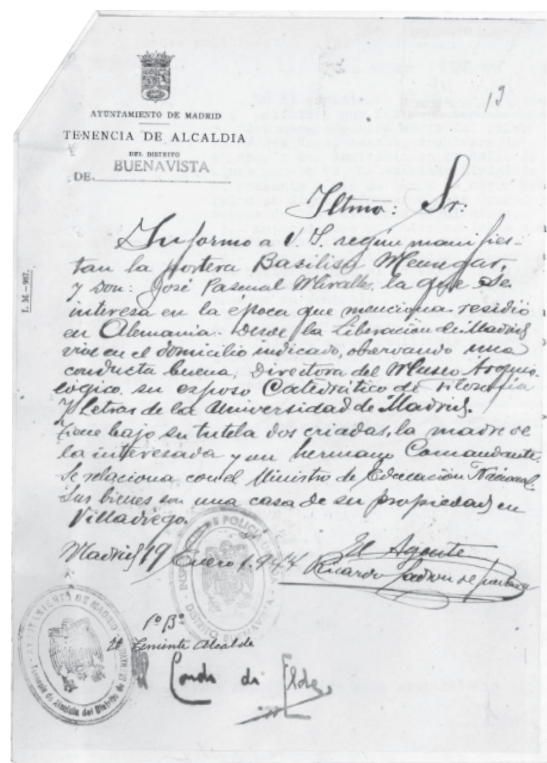 19
AYUNTAMIENTO DE MADRID
TENENCIA DE ALCALDIA
DEL DISTRITO
DE BUENAVISTA
Iltmo: Sr:
Informo a V. S. según manifies-
tan la portera Basilisa
y Don: José Pascual Miralles, la que se
interesa en la época que menciona residió
en Alemania. Desde la Liberación de Madrid
vive en el domicilio indicado, observando una
conducta buena, Directora del Museo Arqueo-
lógico, su esposo Catedrático de Filosofía
y Letras de la Universidad de Madrid.
Tiene bajo su tutela dos criadas, la madre de
la interesada y un hermano Comandante.
Se relaciona con el Ministro de Educación Nacional.
Sus bienes son una casa de su propiedad en
Villadiego.
Madrid 19 Enero 1.944
El Agente
Ricardo
Vº Bº
El Teniente Alcalde
Conde de Elda